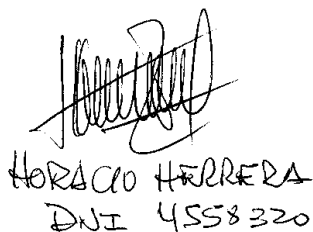 HORACIO HERRERA
DNI 4558320